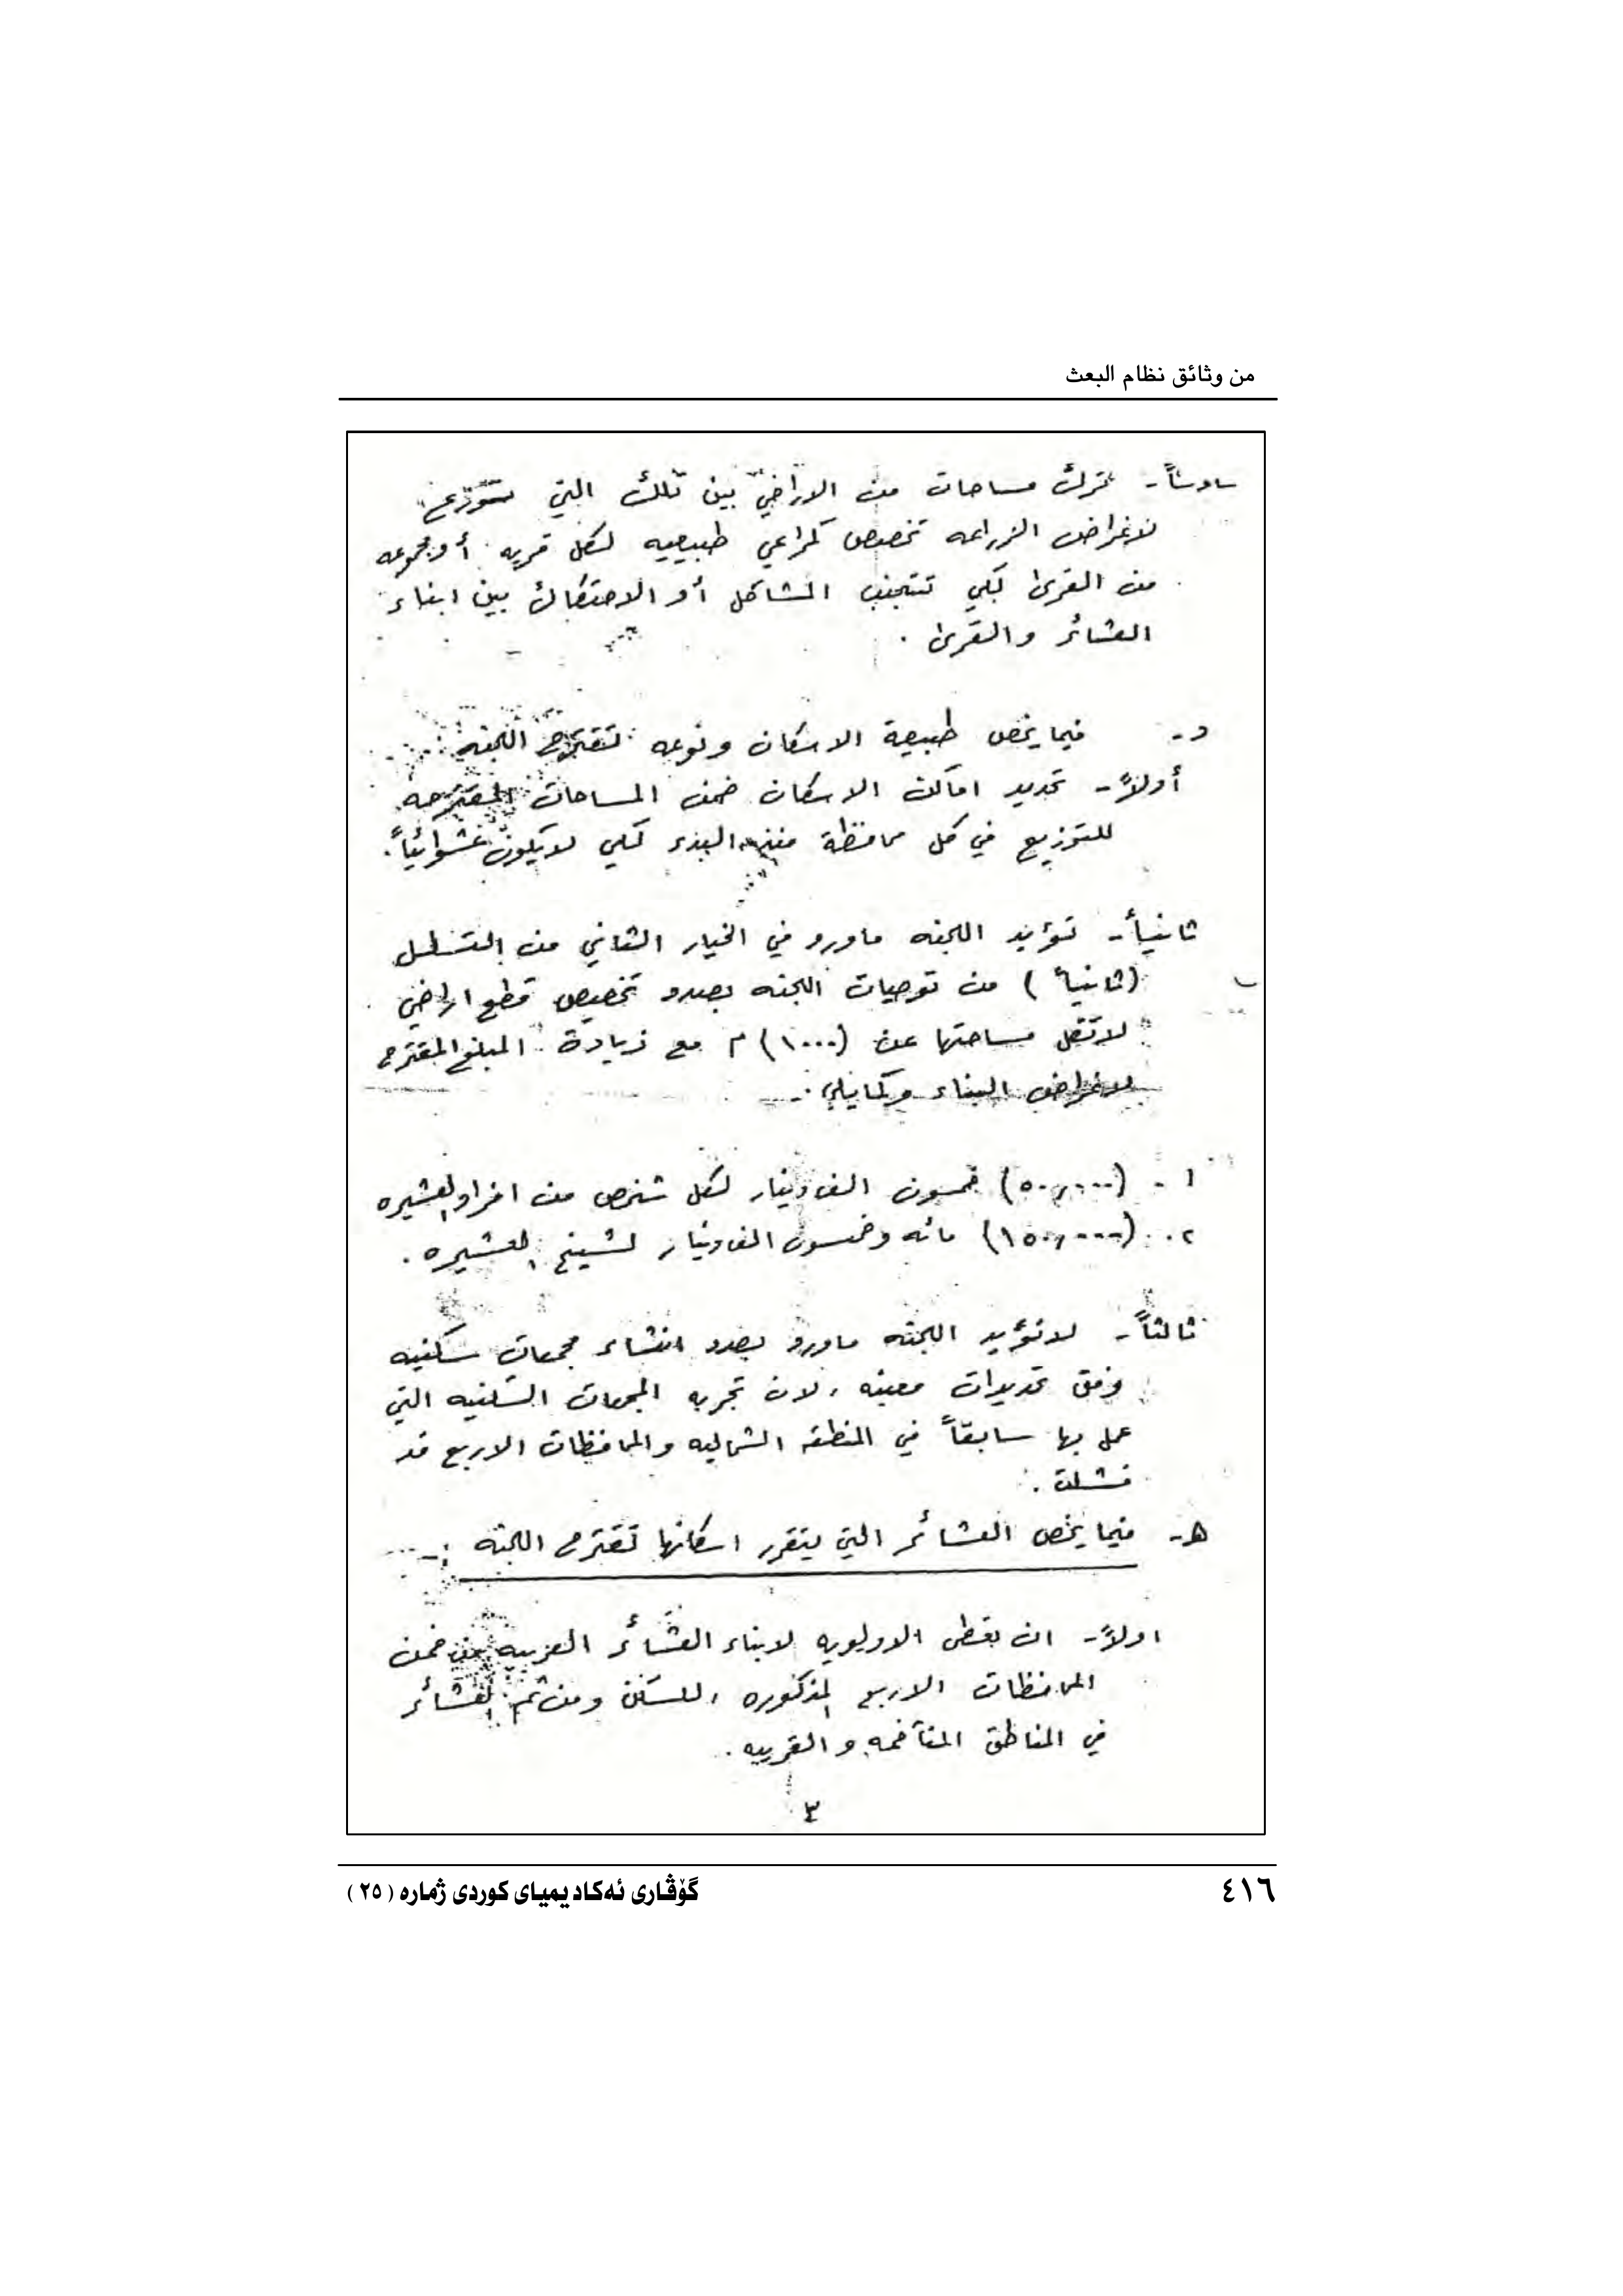 من وثائق نظام البعث
سادساً- تترك مساحات من الاراضي بين تلك التي ستوزع
لاغراض الزراعه تخصص كمراعي طبيعيه لكل قريه أو مجموعه
من القرى لكي تتجنب المشاكل أو الاحتكاك بين ابناء
العشائر والقرى .
د- فيما يخص طبيعة الاسكان ونوعه تقترح اللجنه :
أولاً- تحديد اماكن الاسكان ضمن المساحات المقترحه
للتوزيع في كل محافظة منذ البدء لكي لايكون عشوائياً.
ثانياً- تؤيد اللجنه ماورد في الخيار الثاني من التسلسل
(ثانياً) من توصيات اللجنه بصدد تخصيص قطع اراضي
لاتقل مساحتها عن (١٠٠٠) م مع زيادة المبلغ المقترح
لاغراض البناء وكمايلي :-
١- (٥٠,٠٠٠) خمسون الف دينار لكل شخص من افراد العشيره
٢. (١٥٠,٠٠٠) مائه وخمسون الف دينار لشيخ العشيره .
ثالثاً- لاتؤيد اللجنه ماورد بصدد انشاء مجمعات سكنيه
وفق تحديدات معينه ، لان تجربه المجمعات السكنيه التي
عمل بها سابقاً في المنطقه الشماليه والمحافظات الاربع قد
فشلت .
هـ- فيما يخص العشائر التي يتقرر اسكانها تقترح اللجنه :-
اولاً- ان تعطى الاولويه لابناء العشائر العربيه من ضمن
المحافظات الاربع المذكوره ، للسكن ومن ثم العشائر
في المناطق المتآخمه والقريبه .
٣
٤١٦
گۆڤاری ئەکادیمیای کوردی ژمارە ( ٢٥ )